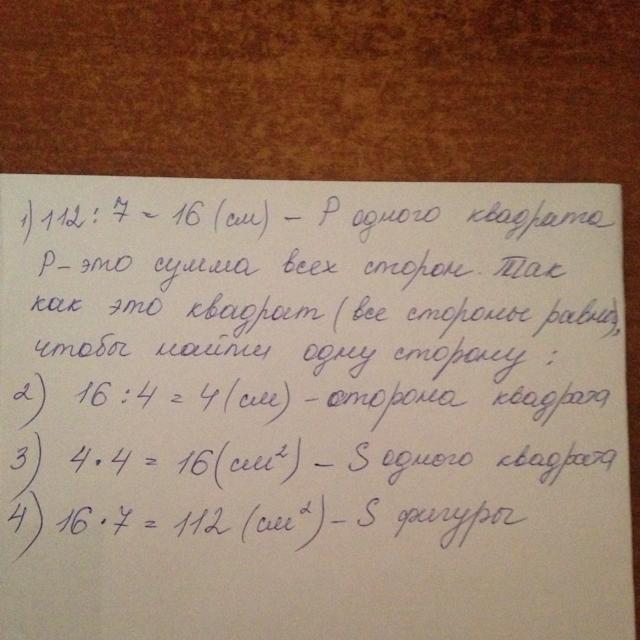 1) 112 : 7 = 16 (см) – Р одного квадрата
Р – это сумма всех сторон. Так
как это квадрат (все стороны равны),
чтобы найти одну сторону :
2) 16 : 4 = 4 (см) – сторона квадрата
3) 4 · 4 = 16 (см²) – S одного квадрата
4) 16 · 7 = 112 (см²) – S фигуры